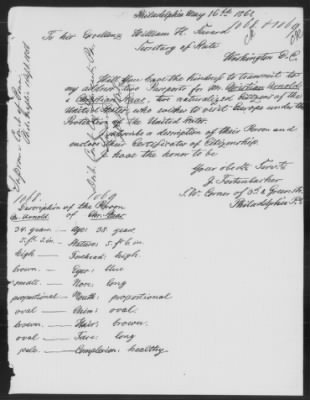 Philadelphia May 16th 1862
1068 & 1069
To his Excellency William H. Seward
Secretary of State
Washington D.C.
Will You have the kindness to transmit to
my address two Passports for Mr. Christian Arnold
& Christian Haas, two naturalized Citizens of the
United States, who wishes to visit Europe under the
Protection of the United States.
I subscribe a description of their Person and
enclose their Certificates of Citizenship.
I have the honor to be
Your obedt. Servt.
J. Fortenbacher
S.W. Corner of 3d & Green Sts.
Philadelphia Pa.
1068. 1069
Description of the Person
Cr. Arnold of Chr. Haas
34. years — Age: 38. years.
5. ft. 5 in. — Stature: 5. ft 6 in.
high — Forehead: high.
brown. — Eyes: blue
small. — Nose: long
proportional — Mouth: proportional
oval — Chin: oval.
brown. — Hair: brown.
oval — Face: long
pale. — Complexion: healthy